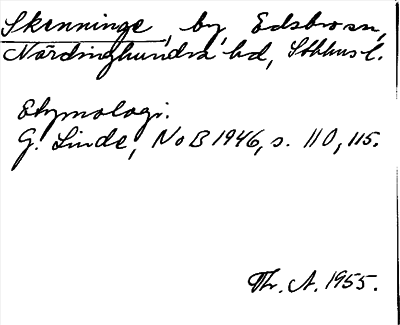 Skenninge, by, Edsbro sn,
Närdinghundra hd, Sthlms l.
Etymologi.
G. Linde, NoB 1946, s. 110, 115.
Th. A. 1955.